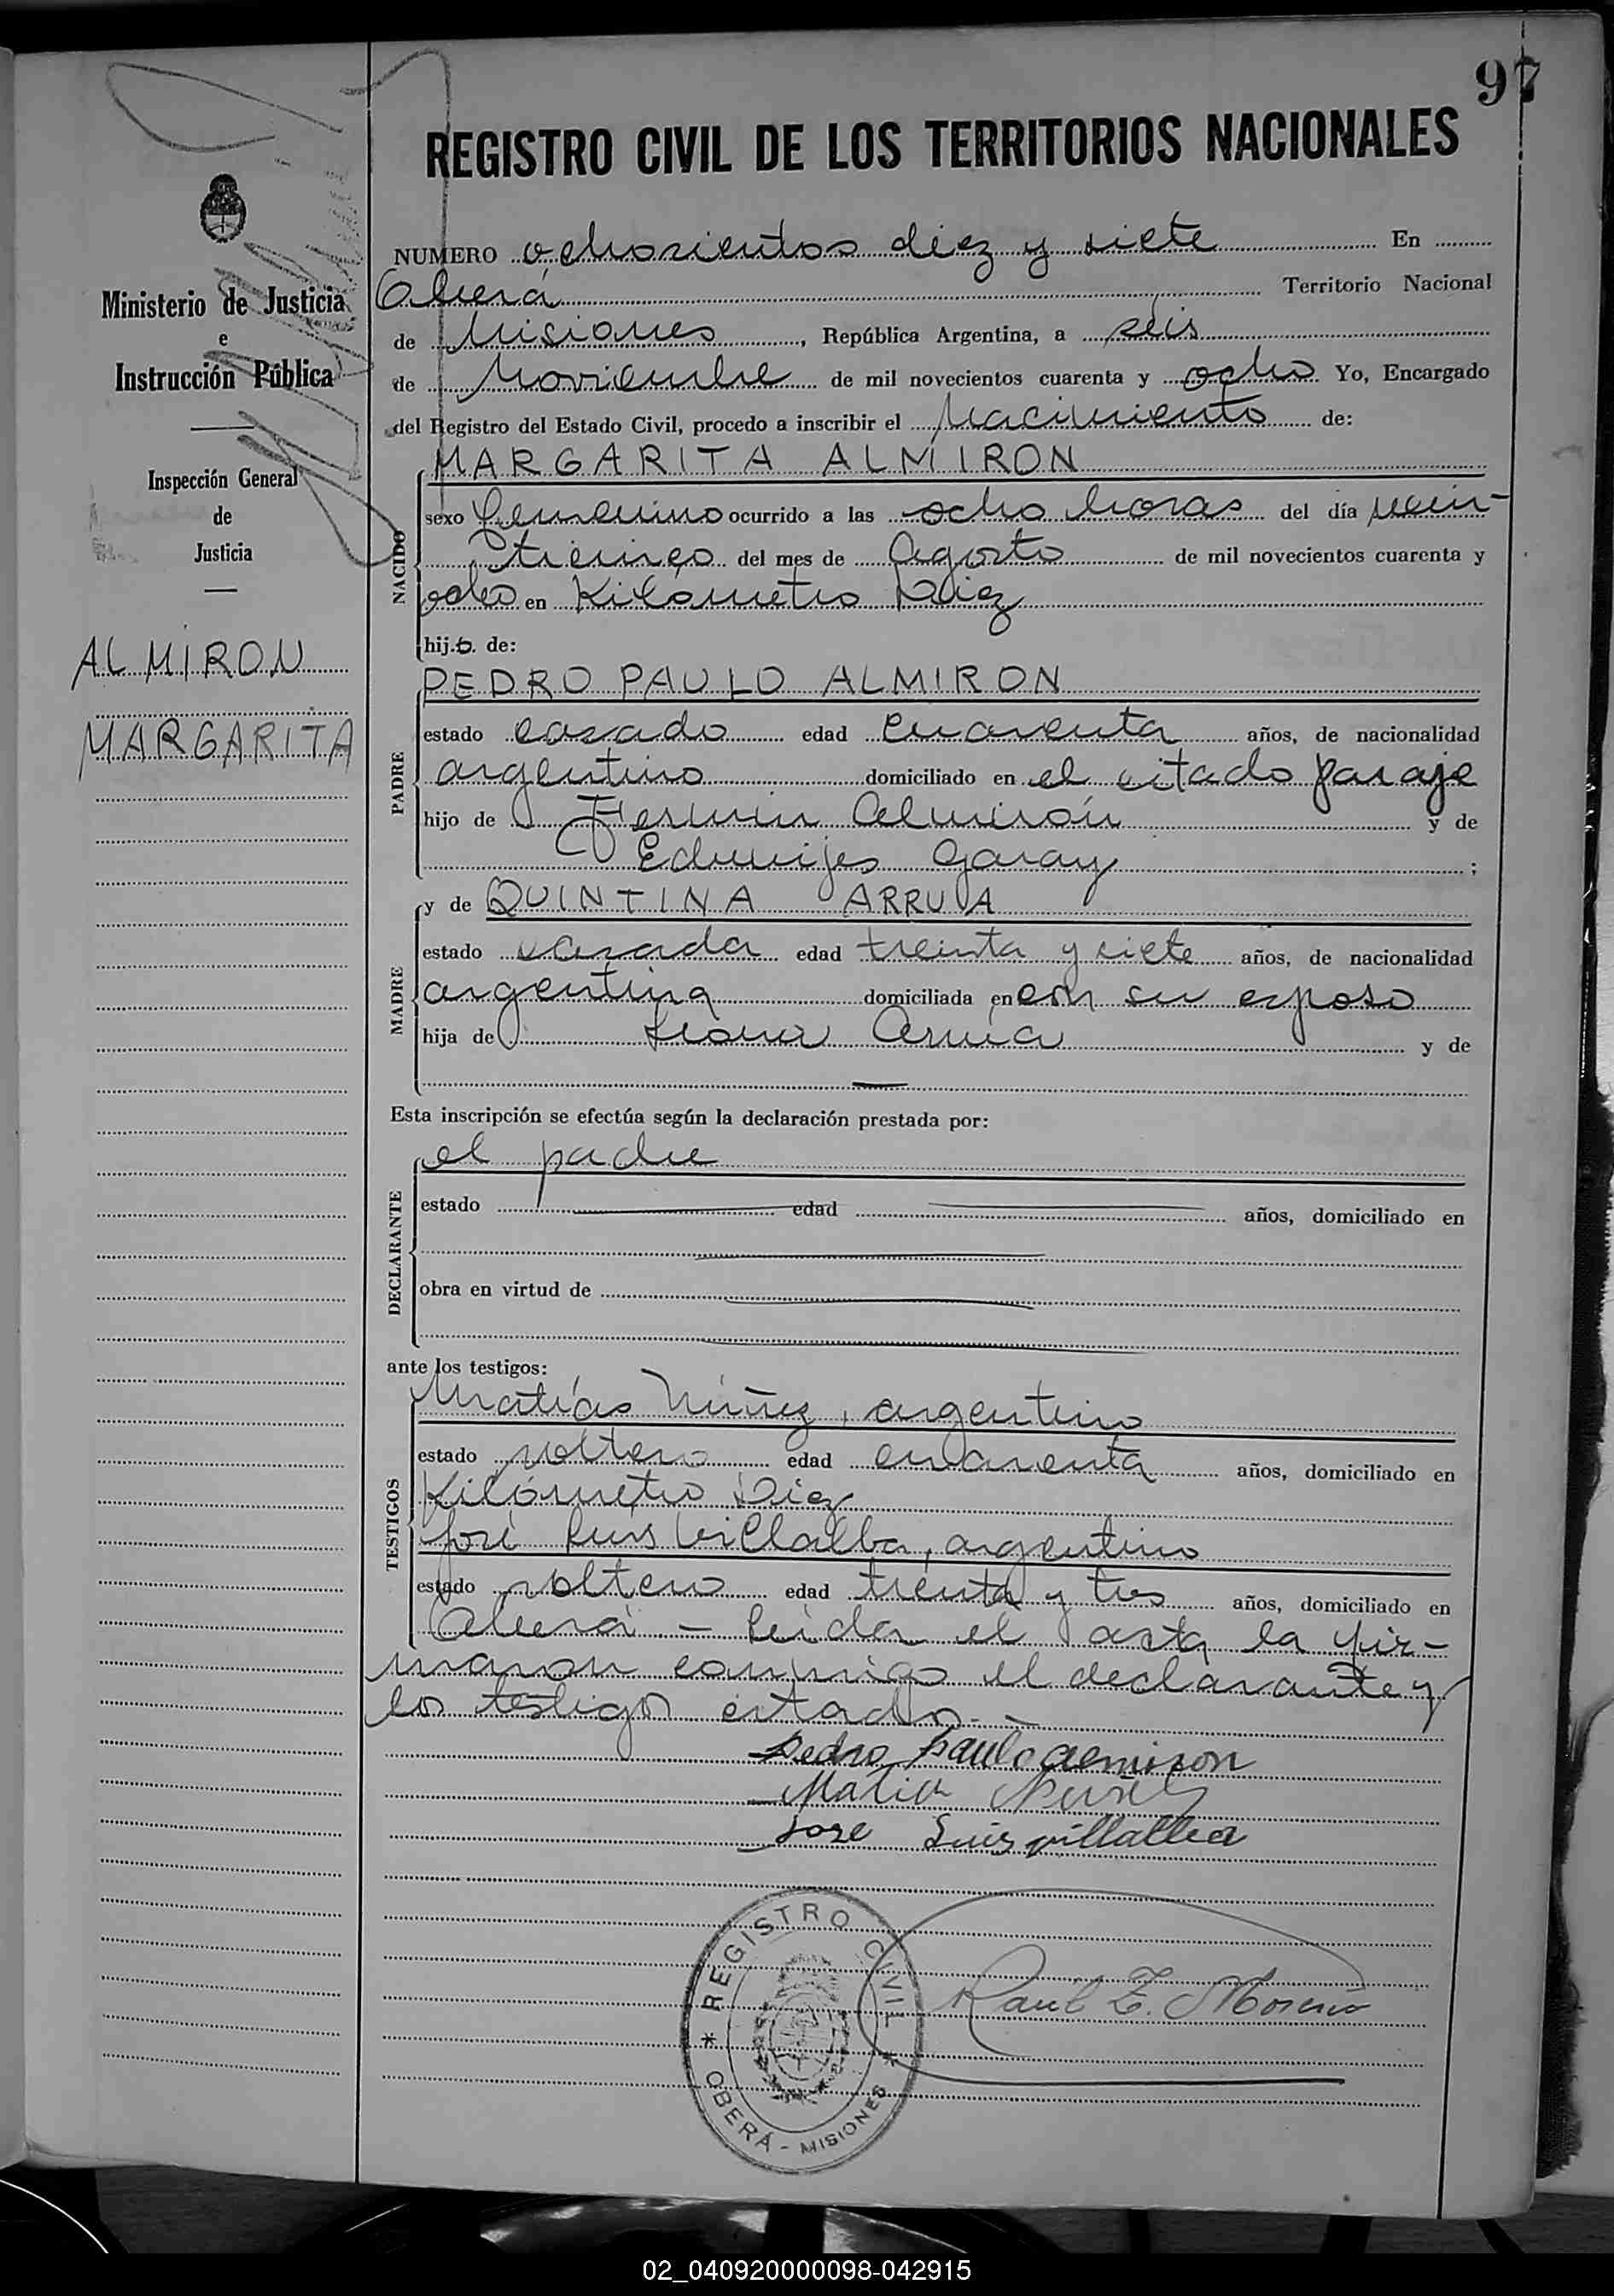 97
REGISTRO CIVIL DE LOS TERRITORIOS NACIONALES
Ministerio de Justicia
e
Instrucción Pública
Inspección General
de
Justicia
ALMIRON
MARGARITA
NUMERO ochocientos diez y siete En
Oberá Territorio Nacional
de Misiones, República Argentina, a seis
de Noviembre de mil novecientos cuarenta y ocho Yo, Encargado
del Registro del Estado Civil, procedo a inscribir el Nacimiento de:
NACIDO
MARGARITA ALMIRON
sexo femenino ocurrido a las ocho horas del día vein-
ticinco del mes de Agosto de mil novecientos cuarenta y
ocho en Kilómetro Diez
hij.o. de:
PADRE
PEDRO PAULO ALMIRON
estado casado edad cuarenta años, de nacionalidad
argentino domiciliado en el citado paraje
hijo de Fermin Almirón y de
Eduvijes Garay ;
MADRE
y de QUINTINA ARRUA
estado casada edad treinta y siete años, de nacionalidad
argentina domiciliada en con su esposo
hija de Arrúa y de
—
Esta inscripción se efectúa según la declaración prestada por:
DECLARANTE
el padre
estado edad años, domiciliado en
obra en virtud de
ante los testigos:
TESTIGOS
Matías Núñez, argentino
estado soltero edad cuarenta años, domiciliado en
Kilómetro Diez
José Luis Villalba, argentino
estado soltero edad treinta y tres años, domiciliado en
Oberá - Leida el acta la fir-
maron conmigo el declarante y
los testigos citados.-
Pedro Paulo almiron
Matia Nuñez
Jose Luis villalba
REGISTRO CIVIL
OBERÁ - MISIONES
Raúl E. Moreno
02_040920000098-042915